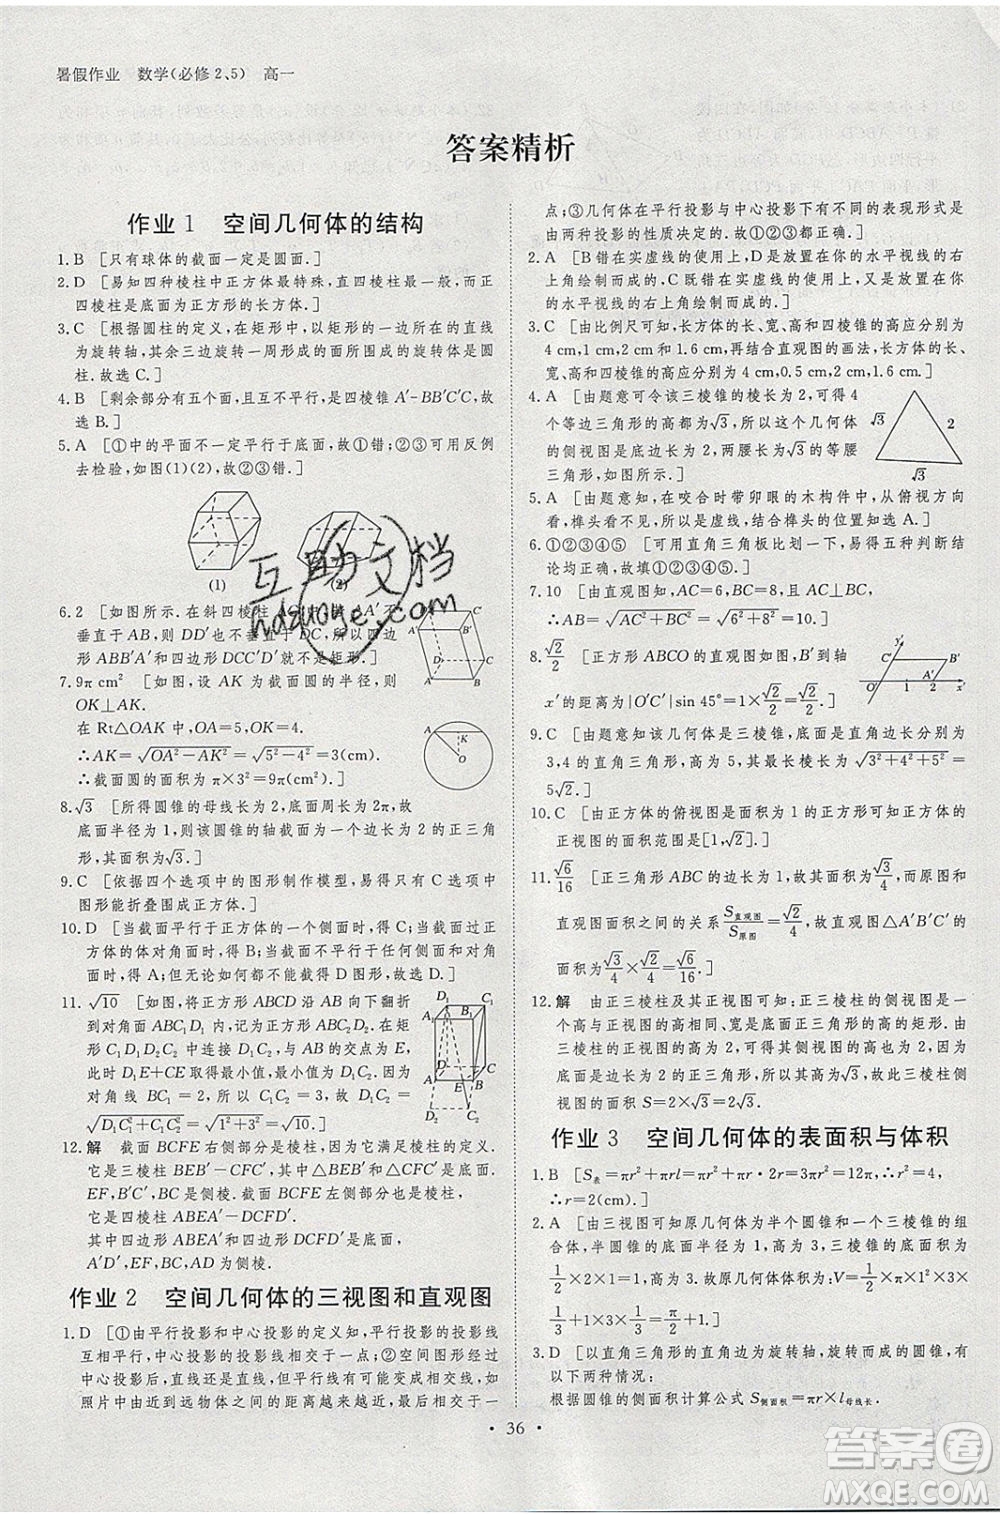 暑假作业 数学(必修2、5) 高一
答案精析
作业1 空间几何体的结构
1.B [只有球体的截面一定是圆面.]
2.D [易知四种棱柱中正方体最特殊,直四棱柱最一般,而正
四棱柱是底面为正方形的长方体.]
3.C [根据圆柱的定义,在矩形中,以矩形的一边所在的直线
为旋转轴,其余三边旋转一周形成的面所围成的旋转体是圆
柱.故选C.]
4.B [剩余部分有五个面,且互不平行,是四棱锥A′-BB′C′C,故
选B.]
5.A [①中的平面不一定平行于底面,故①错;②③可用反例
去检验,如图(1)(2),故②③错.]
(1) (2)
6.2 [如图所示.在斜四棱柱
垂直于AB,则DD′也不垂直于DC,所以四边
形ABB′A′和四边形DCC′D′是矩形.]
7.9π cm² [如图,设AK为截面圆的半径,则
OK⊥AK.
在Rt△OAK中,OA=5,OK=4,
∴AK=√(OA²-AK²)=√(5²-4²)=3(cm),
∴截面圆的面积为π×3²=9π(cm²).]
8.√3 [所得圆锥的母线长为2,底面周长为2π,故
底面半径为1,则该圆锥的轴截面为边长为2的正三角
形,其面积为√3.]
9.C [依据四个选项中的图形制作模型,易得只有选项C中的
图形能折叠围成正方体.]
10.D [当截面平行于正方体的一个侧面时,得C;当截面过正
方体的体对角线时,得B;当截面不平行于任何侧面和对角
面时,得A;但无论如何都不能得出D.故选D.]
11.√10 [将正方形ABCD沿AB向下翻折
到对角面ABC₁D₁内,记为正方形ABC₂D₂.在矩
形C₁D₁D₂C₂中连接D₁C₂,与AB的交点为E,
此时D₁E+CE取得最小值,最小值为
对角线D₁C₂的长,
√(D₁C₁²+C₁C₂²)=√(1²+3²)=√10.]
12.解 截面BCFE右侧部分是棱柱,因为它满足棱柱的定义.
它是三棱柱BEB′-CFC′,其中△BEB′和△CFC′是底面.
EF,B′C′,BC是侧棱.截面BCFE左侧部分也是棱柱.
它是四棱柱ABEA′-DCFD′.
其中四边形ABEA′和四边形DCFD′是底面,
A′D′,EF,BC,AD是侧棱.
作业2 空间几何体的三视图和直观图
1.D [①由平行投影和中心投影的定义知,平行投影的投影线
互相平行,中心投影的投影线相交于一点;②空间图形经过中
心投影后,直线变成直线,但平行线有可能变成了相交线,如
照片中由近到远物体之间的距离越来越近,最后相交于一
点;③几何体在平行投影与中心投影下有不同的表现形式是
由两种投影的性质决定的.故①②③均正确.]
2.A [B错在实虚线的使用上,D是放置在你的水平视线的右
下角绘制而成的,C既错在实虚线的使用上,又是放置在你
的水平视线的右上角绘制而成的.]
3.C [由比例尺可知,长方体的长、宽、高和四棱锥的高应分别为
4 cm,1 cm,2 cm和1.6 cm,再结合直观图的画法,长方体的长、
宽、高和四棱锥的高应分别为4 cm,0.5 cm,2 cm和1.6 cm.]
4.A [由题意可令该三棱锥的棱长为2,因为它
4个面都是等边三角形的高为√3,所以这个几何体
的侧视图是底边长为2,腰长为√3的等腰
三角形,如图所示.]
5.A [由题意知,在咬合时带卯眼的木构件中,从俯视方向
看,榫头看不见,所以是虚线,结合榫头的位置知选A.]
6.①②③④⑤ [可用直角三角板比划一下,易得五种判断结
论均正确.故填①②③④⑤.]
7.10 [由直观图知,AC=6,BC=8,AC⊥BC.
∴AB=√(AC²+BC²)=√(6²+8²)=10.]
8.√2/2 [正方形ABCO的直观图如图,B′到轴
x′的距离为|O′C′|sin 45°=1×√2/2=√2/2.]
9.C [由题意知该几何体是三棱锥,底面是直角边长分别为
3,4的直角三角形,高为5,故最长棱长为√(3²+4²+5²)=
5√2.]
10.C [由正方体的俯视图是面积为1的正方形可知,正方体
的正视图的面积范围是[1,√2].]
11.√6/16 [正三角形ABC的边长为1,故面积为√3/4,而原图和
直观图面积之间的关系S直观图/S原图=√2/4,故直观图△A′B′C′的
面积为√3/4×√2/4=√6/16.]
12.解 由正三棱柱及其正视图可知:正三棱柱的侧视图是一
个高与正视图的高相同、宽是正三角形的高的矩形.由
三棱柱的正视图可知,其高为2,底面正三角形的边长为
2,可得其高为√3,即侧视图的宽为√3,所以此三棱柱侧
视图的面积S=2×√3=2√3.
作业3 空间几何体的表面积与体积
1.B [S表=πr²+πrl=πr²+πr·2r=3πr²=12π,∴r²=4,
∴r=2(cm).]
2.A [由三视图可知原几何体为半个圆锥和一个三棱锥的组
合体,半圆锥的底面半径为1,高为3,三棱锥的底面积为
1/2×2×1=1,高为3.故原几何体体积为:V=1/2×π×1²×3×
1/3+1×3×1/3=π/2+1.]
3.D [以直角三角形的直角边为旋转轴,旋转而成的圆锥,有
以下两种情况:
根据圆锥的侧面积计算公式S侧面积=πr×l母线长.
36
互助文档
hdzuoye.com
答案圈
MXQE.COM